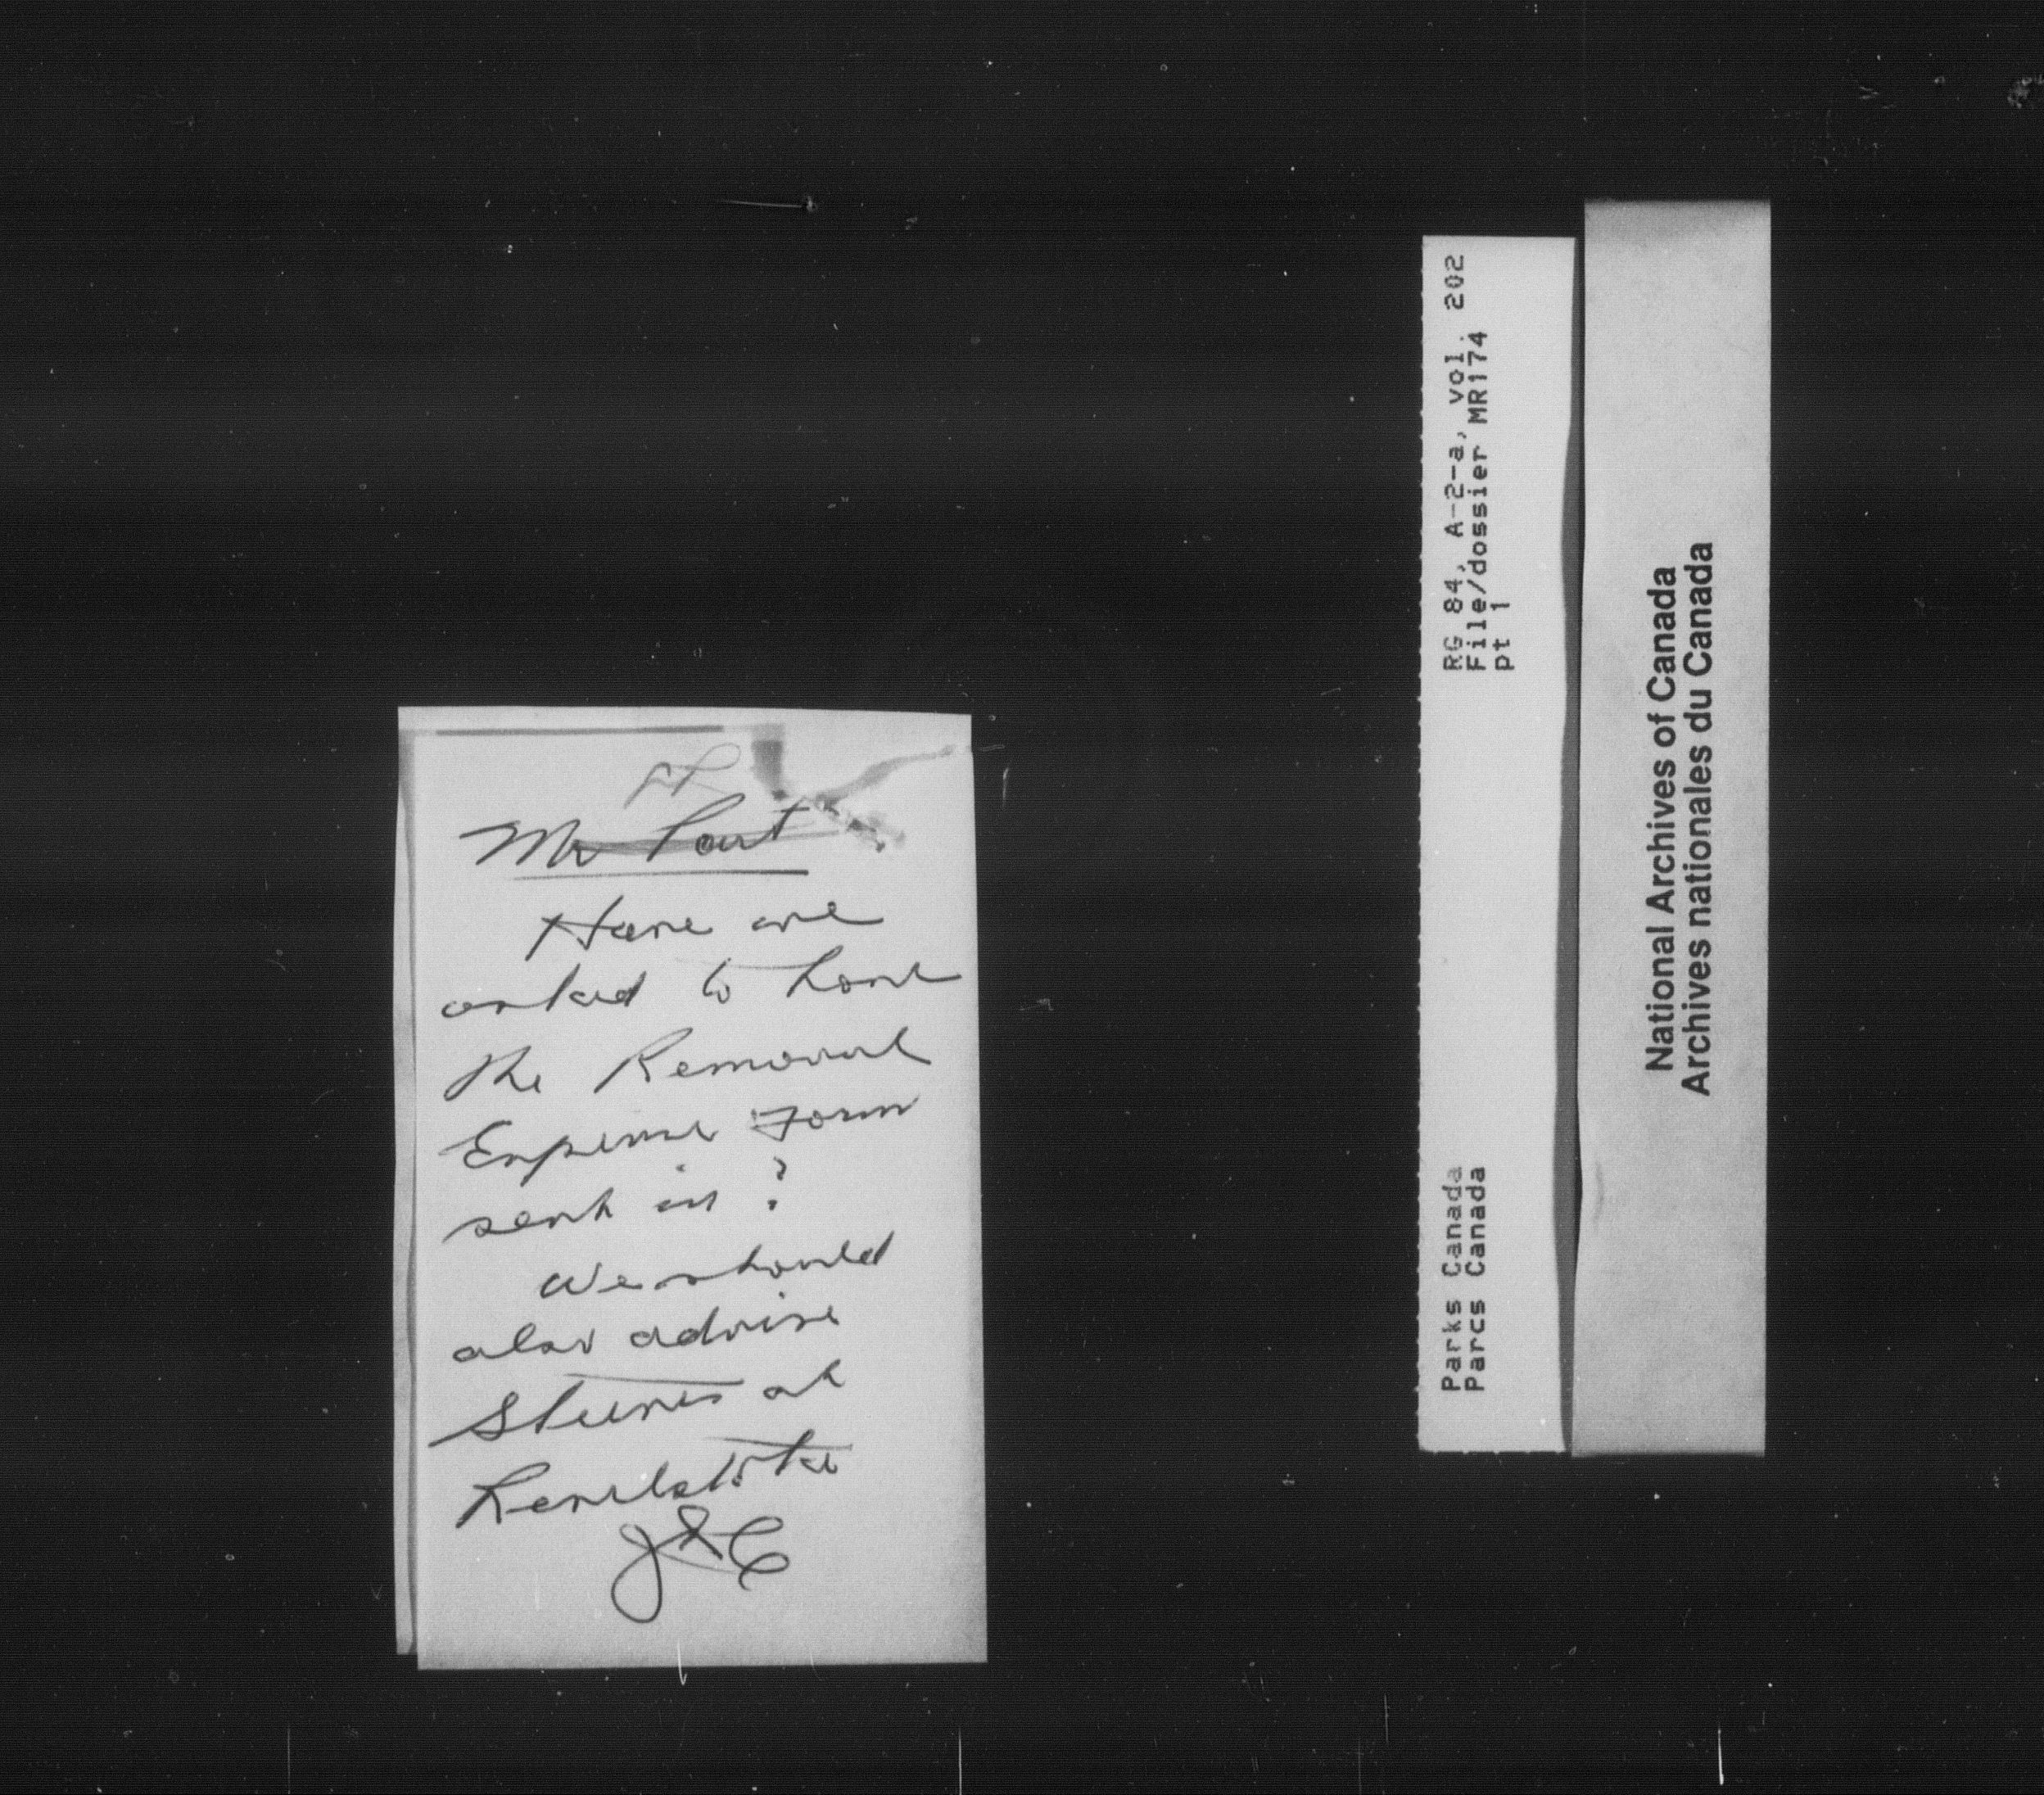 Mr
Have we
asked to have
the Removal
Expense Form
sent in?
We should
also advise
Steeves at
Revelstoke
RG 84, A-2-a, vol. 202
File/dossier MR174
pt 1
Parks Canada
Parcs Canada
National Archives of Canada
Archives nationales du Canada